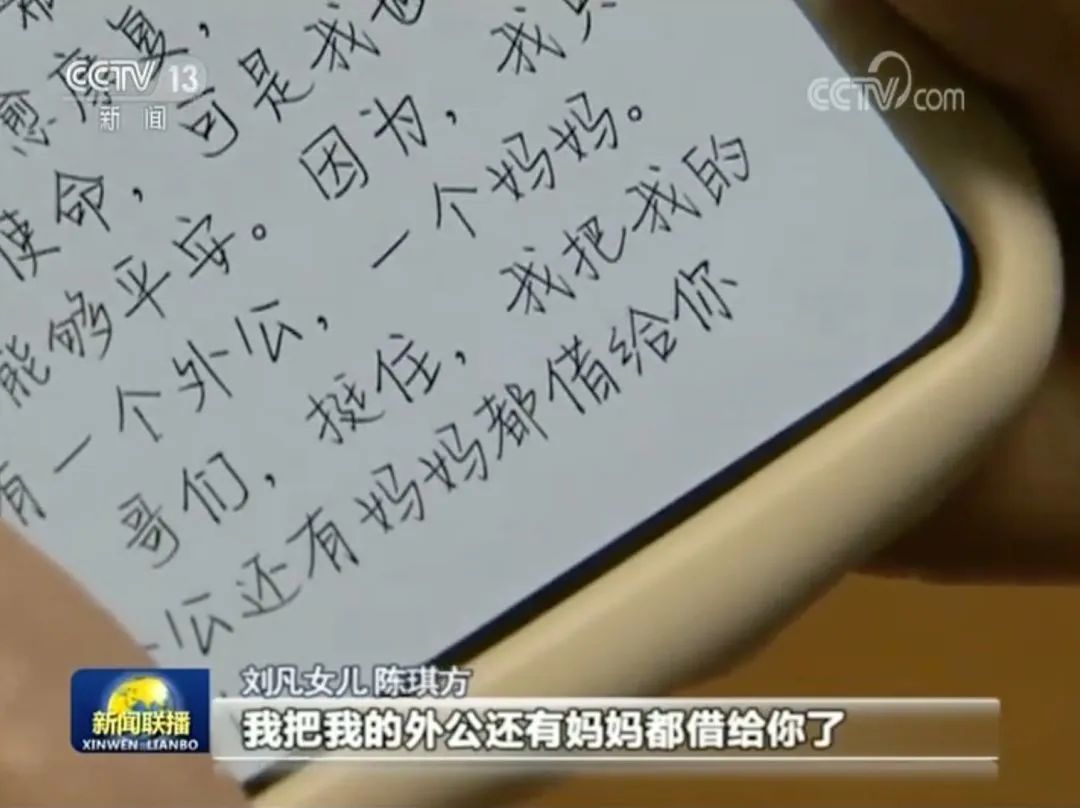 愈康复，
使命，可是我也
能够平安。因为，我只
有一个外公，一个妈妈。
哥们，挺住，我把我的
公还有妈妈都借给你
CCTV 13
新闻
CCTV.com
新闻联播
XINWEN LIANBO
刘凡女儿 陈琪方
我把我的外公还有妈妈都借给你了